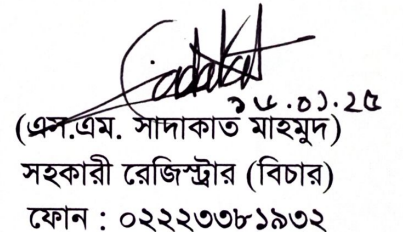 (এস.এম. সাদাকাত মাহমুদ)
সহকারী রেজিস্ট্রার (বিচার)
ফোন : ০২২২৩৩৮১৯৩২